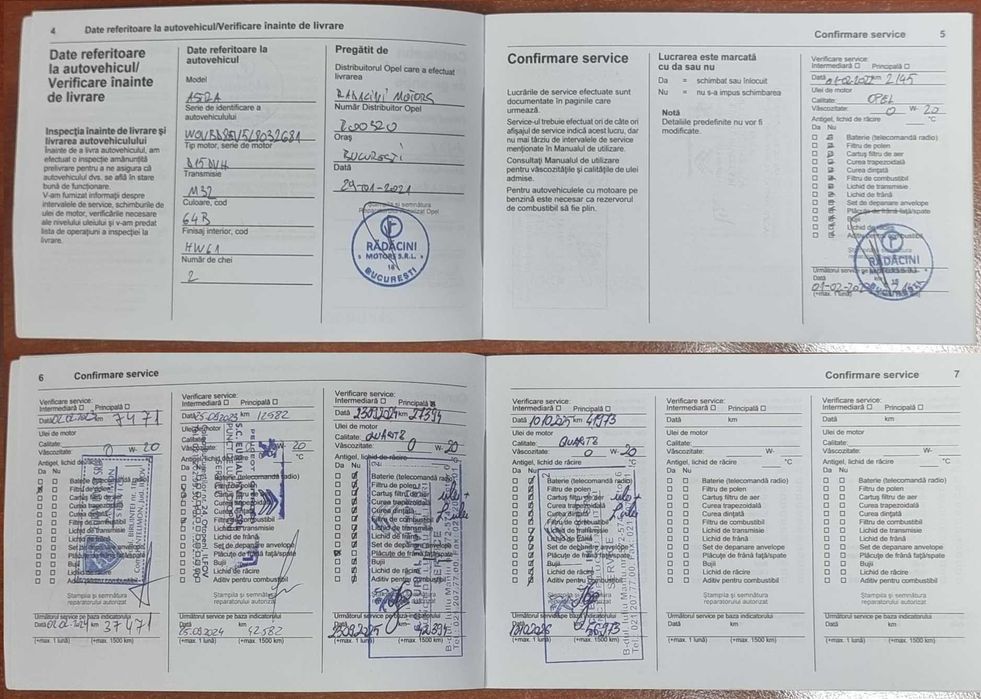 4 Date referitoare la autovehicul/Verificare înainte de livrare
Date referitoare
la autovehicul/
Verificare înainte
de livrare
Inspecția înainte de livrare și
livrarea autovehiculului
Înainte de a livra autovehiculul, am
efectuat o inspecție amănunțită
prelivrare pentru a ne asigura că
autovehiculul dvs. se află în stare
bună de funcționare.
V-am furnizat informații despre
intervalele de service, schimburile de
ulei de motor, verificările necesare
ale nivelului uleiului și v-am predat
lista de operațiuni a inspecției la
livrare.
Date referitoare la
autovehicul
Model
ASTRA
Serie de identificare a
autovehiculului
Tip motor, serie de motor
D15DVH
Transmisie
M32
Culoare, cod
64B
Finisaj interior, cod
HW61
Număr de chei
2
Pregătit de
Distribuitorul Opel care a efectuat
livrarea
RADACINI MOTORS
Număr Distribuitor Opel
R00320
Oraș
BUCURESTI
Data
29-01-2021
Ștampila și semnătura
Reparatorului Autorizat Opel
RĂDĂCINI
MOTORS S.R.L.
18
BUCUREȘTI
Confirmare service 5
Confirmare service
Lucrările de service efectuate sunt
documentate în paginile care
urmează.
Service-ul trebuie efectuat ori de câte ori
afișajul de service indică acest lucru, dar
nu mai târziu de intervalele de service
menționate în Manualul de utilizare.
Consultați Manualul de utilizare
pentru vâscozitățile și calitățile de ulei
admise.
Pentru autovehiculele cu motoare pe
benzină este necesar ca rezervorul
de combustibil să fie plin.
Lucrarea este marcată
cu da sau nu
Da = schimbat sau înlocuit
Nu = nu s-a impus schimbarea
Notă
Detaliile predefinite nu vor fi
modificate.
Verificare service:
Intermediară Principală
Data 01-02-2022 km 2145
Ulei de motor
Calitate: OPEL
Vâscozitate: 0 W- 20
Antigel, lichid de răcire °C
Da Nu
Baterie (telecomandă radio)
Filtru de polen
Cartuș filtru de aer
Curea trapezoidală
Curea dințată
Filtru de combustibil
Lichid de transmisie
Lichid de frână
Set de depanare anvelope
Plăcuțe de frână față/spate
Bujii
Lichid de răcire
Aditiv pentru combustibil
RĂDĂCINI
MOTORS S.R.L.
18
BUCUREȘTI
Următorul service pe baza indicatorului
Data km
(+max. 1 lună)
6 Confirmare service
Verificare service:
Intermediară Principală
Data km 7471
Ulei de motor
Calitate:
Vâscozitate: 0 W- 20
Antigel, lichid de
Da Nu
Baterie (telecomandă radio)
Filtru de polen
Cartuș filtru de aer
Curea trapezoidală
Curea dințată
Filtru de combustibil
Lichid de transmisie
Lichid de frână
Set de depanare anvelope
Plăcuțe de frână față/spate
Bujii
Lichid de răcire
Aditiv pentru combustibil
Ștampila și semnătura
reparatorului autorizat
Următorul service pe baza indicatorului
Data km 37471
(+max. 1 lună) (+max. 1500 km)
Verificare service:
Intermediară Principală
Data 05.09.2023 km 12582
Ulei de motor
Calitate:
Vâscozitate: W- 20
Antigel, lichid °C
Da Nu
Baterie (telecomandă radio)
Filtru de polen
Cartuș filtru de aer
Curea trapezoidală
Curea dințată
Filtru de combustibil
Lichid de transmisie
Lichid de frână
Set de depanare anvelope
Plăcuțe de frână față/spate
Bujii
Lichid de răcire
Aditiv pentru combustibil
Ștampila și semnătura
reparatorului autorizat
Următorul service pe baza indicatorului
Data 05.09.2024 km 42582
(+max. 1 lună) (+max. 1500 km)
Verificare service:
Intermediară Principală
Data 23.09.2024 km 27394
Ulei de motor
Calitate: QUARTZ
Vâscozitate: 0 W- 20
Antigel, lichid de răcire
Da Nu
Baterie (telecomandă radio)
Filtru de polen
Cartuș filtru de aer
Curea trapezoidală
Curea dințată
Filtru de combustibil
Lichid de transmisie
Lichid de frână
Set de depanare anvelope
Plăcuțe de frână față/spate
Bujii
Lichid de răcire
Aditiv pentru combustibil
ulei +
Ștampila și semnătura
reparatorului autorizat
Următorul service pe baza indicatorului
Data 23.09.2025 km 42394
(+max. 1 lună) (+max. 1500 km)
Confirmare service 7
Verificare service:
Intermediară Principală
Data 10.10.2025 km 41973
Ulei de motor
Calitate: QUARTZ
Vâscozitate: 0 W- 20
Antigel, lichid de răcire
Da Nu
Baterie (telecomandă radio)
Filtru de polen
Cartuș filtru de aer
Curea trapezoidală
Curea dințată
Filtru de combustibil
Lichid de transmisie
Lichid de frână
Set de depanare anvelope
Plăcuțe de frână față/spate
Bujii
Lichid de răcire
Aditiv pentru combustibil
ulei +
Ștampila și semnătura
reparatorului autorizat
Următorul service pe baza indicatorului
Data km 56973
(+max. 1 lună) (+max. 1500 km)
Verificare service:
Intermediară Principală
Data km
Ulei de motor
Calitate:
Vâscozitate: W-
Antigel, lichid de răcire °C
Da Nu
Baterie (telecomandă radio)
Filtru de polen
Cartuș filtru de aer
Curea trapezoidală
Curea dințată
Filtru de combustibil
Lichid de transmisie
Lichid de frână
Set de depanare anvelope
Plăcuțe de frână față/spate
Bujii
Lichid de răcire
Aditiv pentru combustibil
Ștampila și semnătura
reparatorului autorizat
Următorul service pe baza indicatorului
Data km
(+max. 1 lună) (+max. 1500 km)
Verificare service:
Intermediară Principală
Data km
Ulei de motor
Calitate:
Vâscozitate: W-
Antigel, lichid de răcire °C
Da Nu
Baterie (telecomandă radio)
Filtru de polen
Cartuș filtru de aer
Curea trapezoidală
Curea dințată
Filtru de combustibil
Lichid de transmisie
Lichid de frână
Set de depanare anvelope
Plăcuțe de frână față/spate
Bujii
Lichid de răcire
Aditiv pentru combustibil
Ștampila și semnătura
reparatorului autorizat
Următorul service pe baza indicatorului
Data km
(+max. 1 lună) (+max. 1500 km)